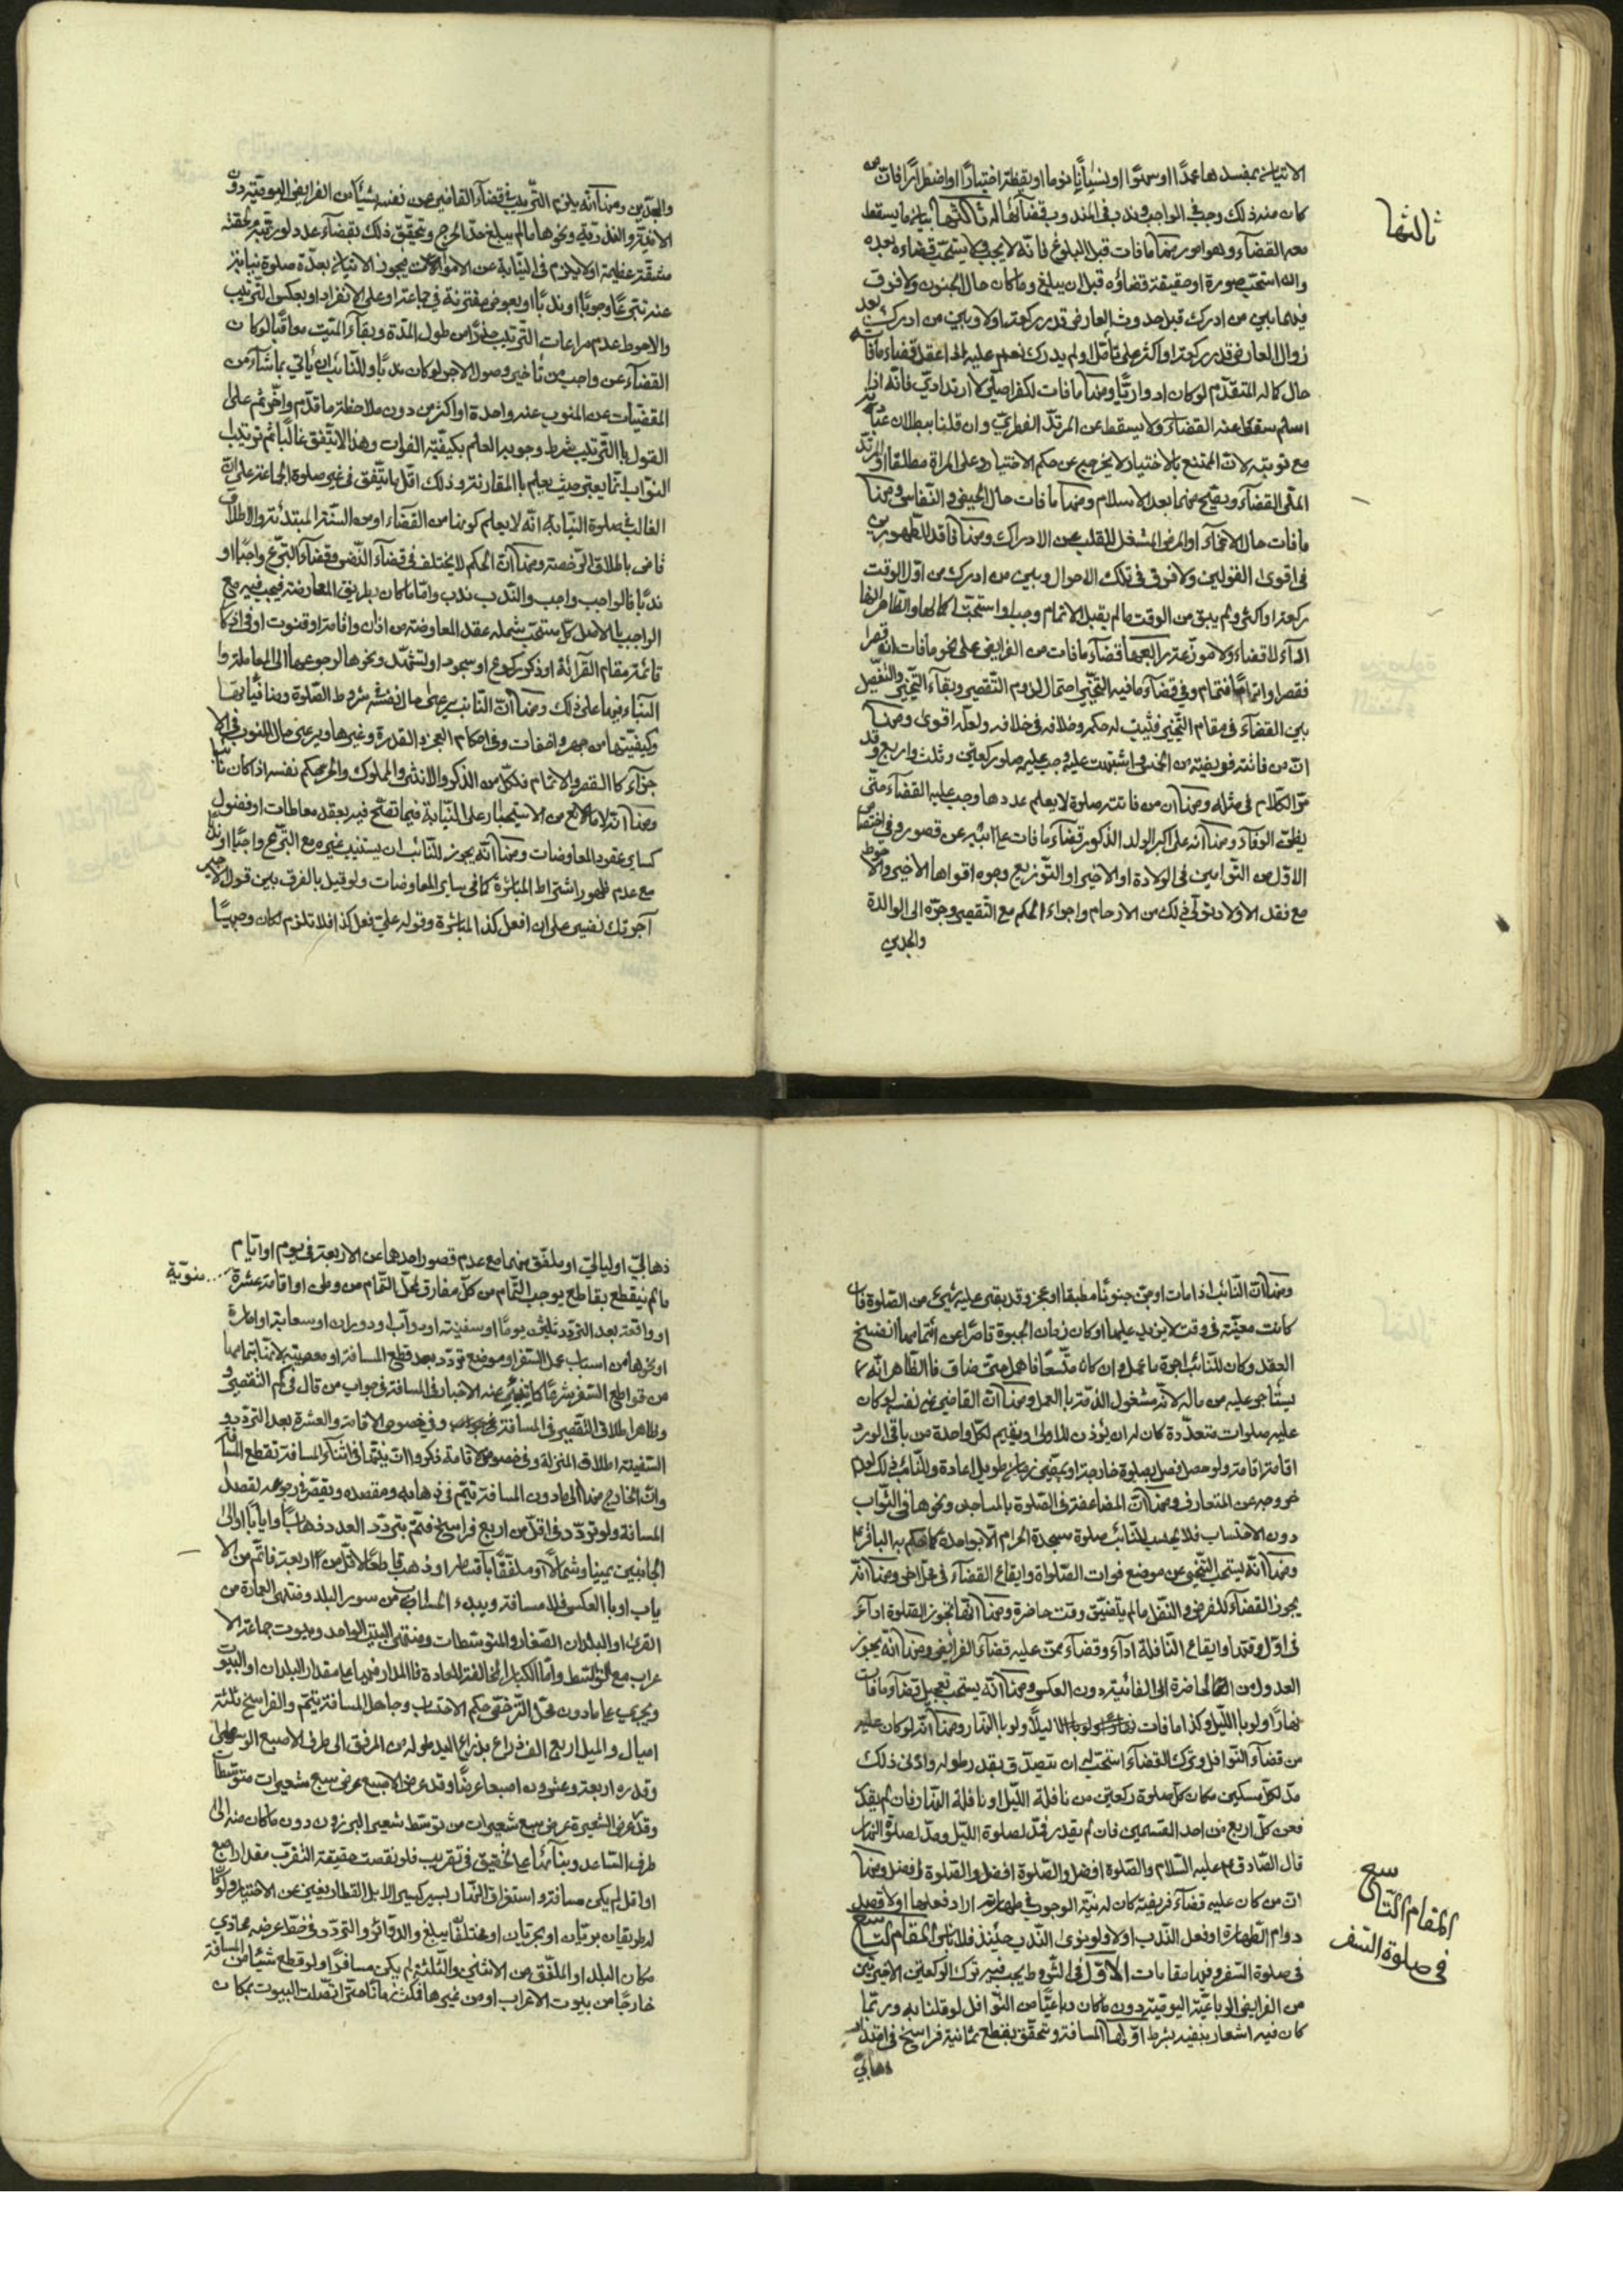 الاتيان بمفسدها عمدًا او سهوًا او نسيانًا نوما او يقظة اختيارًا او اضطرارًا فات من
كان منه ذلك وجب في الواجب وندب في المندوب قضائها له ثالثها بيان ما يسقط
ثالثها
معه القضاء وهو امور منها ما فات قبل البلوغ فانه لا يجب ولا يستحب قضاءه بعده
وان استحب صورة او حقيقة قضاؤه قبل ان يبلغ وما كان حال الجنون ولا فرق
فيهما بين من ادرك قبل حدوث العارض قدر ركعة اولا وبين من ادرك بعد
زوال العارض قدر ركعة او اكثر على تأمل ولم يدرك نعم عليه اذا عقل قضاء ما فاته
حال كماله المتقدم لو كان ادواريًا ومنها ما فات لكفر اصلي لا ارتدادي فانه اذا
اسلم سقط عنه القضاء ولا يسقط عن المرتد الفطري وان قلنا ببطلان عباداته
مع توبته لان الممتنع بالاختيار لا يخرج عن حكم الاختيار وعلى المراة مطلقا او المرتد
الملي القضاء ويصح منهما بعد الاسلام ومنها ما فات حال الحيض والنفاس ومنها
ما فات حال الاغماء او المرض المشغل للقلب عن الادراك ومنها فاقد الطهورين
في اقوى القولين ولا فرق في تلك الاحوال وبين من ادرك من اول الوقت
ركعة او اكثر ولم يبق من الوقت ما لم يقبل الاتمام وجب او استحب اكمالها والظاهر انها
اداء لا قضاء ولا موزعة رابعها قضاء ما فات من الفرايض على نحو ما فات ان قصرا
فقصرا وتماما فتمام وفي قضاء ما فيه التخيير احتمال لزوم التقصير وبقاء التخيير والتفصيل
بين القضاء في مقام التخيير فيثبت له حكمه وخلافه في خلافه ولعله اقوى ومنها
ان من فاتته فريضة من الخمس واشتبهت عليه وجب عليه صلوة ركعتين وثلث واربع وقد
مر الكلام في مثله ومنها ان من فاتته صلوة لا يعلم عددها وجب عليه القضاء حتى
يظن الوفاء ومنها انه على اكبر الولد الذكور قضاء ما فات عن ابيه عن قصور وفي اختصاص
الاول من التوامين في الولادة او الاخير او التوزيع وجوه اقواها الاخير والاحوط
مع فقد الاولاد تولي ذلك من الارحام واجراء الحكم مع التقصير وجره الى الوالدة
والجدين
والجدين ومنها انه يلزم الترتيب في قضاء القاضي عن نفسه شيئا من الفرايض اليومية دون
الاتية والنذرية ونحوها ما لم يبلغ حد الحرج ويتحقق ذلك بقضاء عدد لو رتبه لحقته
مشقة عظيمة ولا يلزم في النيابة عن الاموات فيجوز الاتيان بعدة صلوة نيابة
عنه تبرعا وجوبا او ندبا او بعوض مقترنة في جماعة او على الانفراد او بعكس الترتيب
والاحوط عدم مراعات الترتيب حذرا من طول المدة وبقاء الميت معاقبا لو كان
القضاء عن واجب من تاخير وصول الاجر لو كان ندبا وللنائب ان ياتي بما شاء من
المقضيات عن المنوب عنه واحدة او اكثر من دون ملاحظة ما قدم واخر ثم على
القول بالترتيب شرط وجوبه العلم بكيفية الفوات وهذا لا يتفق غالبا ثم ترتيب
النواب انما يعتبر حيث يعلم بالمقارنة وذلك اقل ما يتفق في غير صلوة الجماعة على ان
الغالب في صلوة النيابة انه لا يعلم كونها من القضاء او من السنة المبتدئة والاطلاق
قاض باطلاق الرخصة ومنها ان الحكم لا يختلف في قضاء النفس وقضاء التبرع واجبا او
ندبا فالواجب واجب والندب ندب واما ما كان بطريق المعاوضة فيجب فيه مع
الواجب بالاصل كل مستحب شمله عقد المعاوضة من اذان واقامة او قنوت او في اذكار
قائمة مقام القرائة او ذكر ركوع او سجود او تشهد ونحوها لرجوعها الى المعاملة
البناء فيها على ذلك ومنها ان النائب يرعى حال نفسه في شروط الصلوة ومنافياتها
وكيفيتها من جهر واخفات وفي احكام العجز والقدرة وغيرها ويرعى حال المنوب في الا
جزاء كالقصر والاتمام فلكل من الذكر والانثى والمملوك والحر حكم نفسه اذا كان نائبا
ومنها انه لا مانع من الاستيجار على النيابة فيما تصح فيه بعقد معاطات او فضولي
كساير عقود المعاوضات ومنها انه يجوز للنائب ان يستنيب غيره مع التبرع واجبا او ندبا
مع عدم ظهور اشتراط المباشرة كما في ساير المعاوضات ولو قيل بالفرق بين قول الاجير
آجرتك نفسي على ان افعل كذا المباشرة وقوله علي فعل كذا فلا تلزم لكان وجيها
ومنها ان النائب اذا مات او جن جنونا مطبقا او عجز وقد بقي عليه شيء من الصلوة فان
كانت معينة في وقت لا يزيد عليها او كان زمان الحبوة قاصرا عن اتمامها انفسخ
العقد وكان للنائب اجرة ما عمل وان كان متسعا فاهمل حتى ضاق فالظاهر انه
يستأجر عليه من ماله لانه مشغول الذمة بالعمل ومنها ان القاضي عن نفسه لو كان
عليه صلوات متعددة كان له ان يؤذن للاولى ويقيم لكل واحدة من باقي الورد
اقامة اقامة ولو حصل فصل بصلوة خارجة او بمضي زمان طويل اعادة وللنائب ذلك لعدم
خروجه عن المتعارف ومنها ان المضاعفة في الصلوة بالمساجد ونحوها في الثواب
دون الاحتساب فلا يحسب للنائب صلوة مسجدة الحرام الا بواحدة كما حكم به الباقر ع
ومنها انه يستحب التنحي عن موضع فوات الصلواة وايقاع القضاء في محل اخر ومنها انه
يجوز القضاء للفرض والنفل ما لم يتضيق وقت حاضرة ومنها انها تجوز الصلوة اداء
في اول وقتها وايقاع النافلة اداء وقضاء ممن عليه قضاء الفرايض ومنها انه يجوز
العدول من الحاضرة الى الفائتة دون العكس ومنها انه يستحب تعجيل قضاء ما فات
نهارا ولو بالليل وكذا ما فات ليلا ولو بالنهار ومنها انه لو كان عليه
من قضاء النوافل وترك القضاء استحب له ان يتصدق بقدر طوله وادنى ذلك
مد لكل مسكين مكان كل صلوة ركعتين من نافلة الليل او نافلة النهار فان لم يقدر
فعن كل اربع من احد القسمين فان لم يقدر فمد لصلوة الليل ومد لصلوة النهار
قال الصادق ع عليه السلام والصلوة افضل والصلوة افضل والصلوة افضل ومنها
ان من كان عليه قضاء فريضة كان له نية الوجوب في طهارته اراد فعلها اولا قصد
دوام الطهارة او فعل الندب اولا ولو نوى الندب حينئذ فلا باس المقام التاسع
المقام التاسع
في صلوة السفر
في صلوة السفر وفيها مقامات الاول في الشروط يجب فيه ترك الركعتين الاخيرتين
من الفرايض الرباعية اليومية دون ما كان رباعيا من النوافل لو قلنا به وربما
كان فيه اشعار بنفيه بشرط اولها المسافة وتتحقق بقطع ثمانية فراسخ في امتداد
ذهابي
ذهابي او ليالي او ملفق منهما مع عدم قصور احدهما عن الاربعة في يوم او ايام
ما لم ينقطع بقاطع يوجب التمام من كل مفارق لمحل التمام من وطن او اقامة عشرة منوية
او واقعة بعد التردد ثلثين يوما او سفينة او دواب او دوران او سعاية او امارة
او نحوها من اسباب عمل السفر او موضع تردد بعد قطع المسافة او معصية لانها باتمامها
من قواطع السفر شرعا كما ينبئ عنه الاخبار في المسافة في جواب من قال في كم التقصير و
وظاهر اطلاق التقصير في المسافة وفي خصوص الاقامة والعشرة بعد التردد و
السفينة اطلاق المنزلة وفي خصوص الاقامة ذكروا ان نيتها في اثناء المسافة تقطع السفر
وان الخارج منها الى ما دون المسافة يتم في ذهابه ومقصده ويقصر في رجوعه لقصد
المسافة ولو تردد في اقل من اربع فراسخ فتم بتردد العدد ذهابا وايابا او الى
الجانبين يمينا وشمالا او ملفقا باقسامه او ذهب قاطعا لاقل من اربعة فاتم من الا
ياب او بالعكس فلا مسافة ويبدء الحساب من سور البلد ومنتهى العمارة من
القرى او البلدان الصغار والمتوسطات ومنتهى البيت الواحد وبيوت جماعة الا
عراب مع التوسط واما الكبار المخالفة للعادة فالمدار فيها على مقدار البلدان او البيوت
ويجري ما دون محل الترخص حكم الاحتساب وجاهل المسافة يتم والفراسخ ثلثة
اميال والميل اربع الف ذراع بذراع اليد طوله من المرفق الى طرف الاصبع الوسطى
وقدره اربعة وعشرون اصبعا عرضا وقدر عرض الاصبع عرض سبع شعيرات متوسطات
وقدر عرض الشعيرة عرض سبع شعيرات من توسط شعر البرذون دون ما كان منه الى
طرف الساعد وبنائها على تحقيق في تقريب فلو نقصت حقيقة التقرب مقدار اصبع
او اقل لم يكن مسافة واستغراق النهار بسير كسير الابل القطار يغني عن الاختبار ولو كان
له طريقان بريان او بحريان او مختلفان يبلغ والدقائق والتردد في خط عرضه محاذي
مكان البلد او الملفق من الاثنين والثلثة لم يكن مسافرا ولو قطع شيئا من المسافة
خارجا من بيوت الاعراب او من غيرها فمكث زمانا حتى اتصلت البيوت بمكان